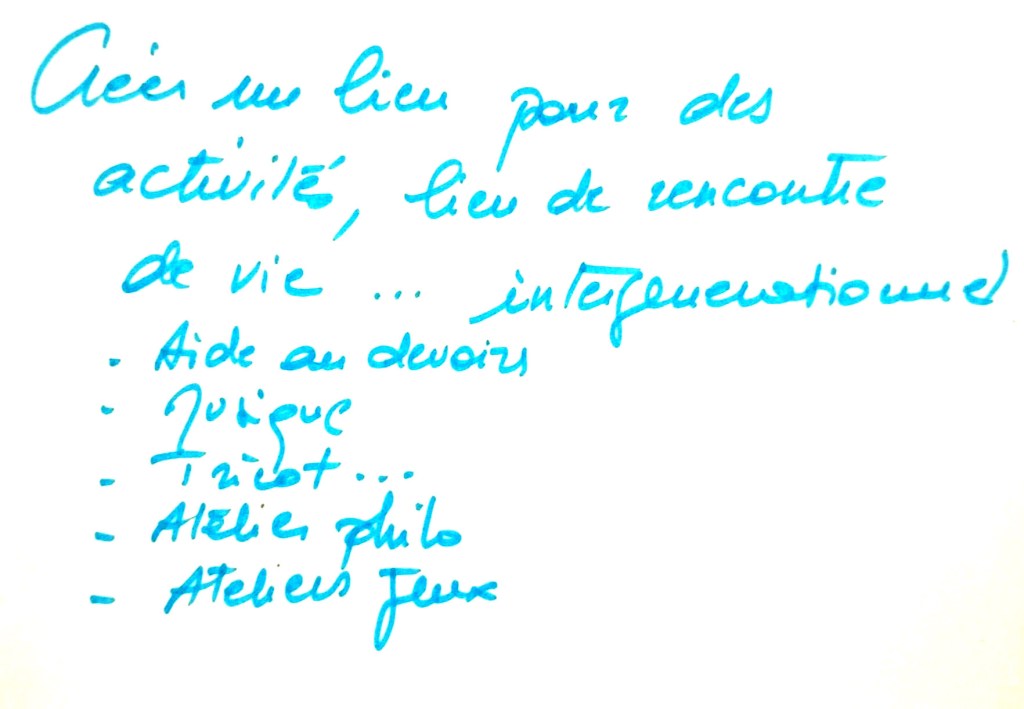 Créer un lieu pour des
activité, lieu de rencontre
de vie ... intergenerationnel
- Aide au devoirs
- Musique
- Tricot ...
- Atelier philo
- Ateliers Jeux